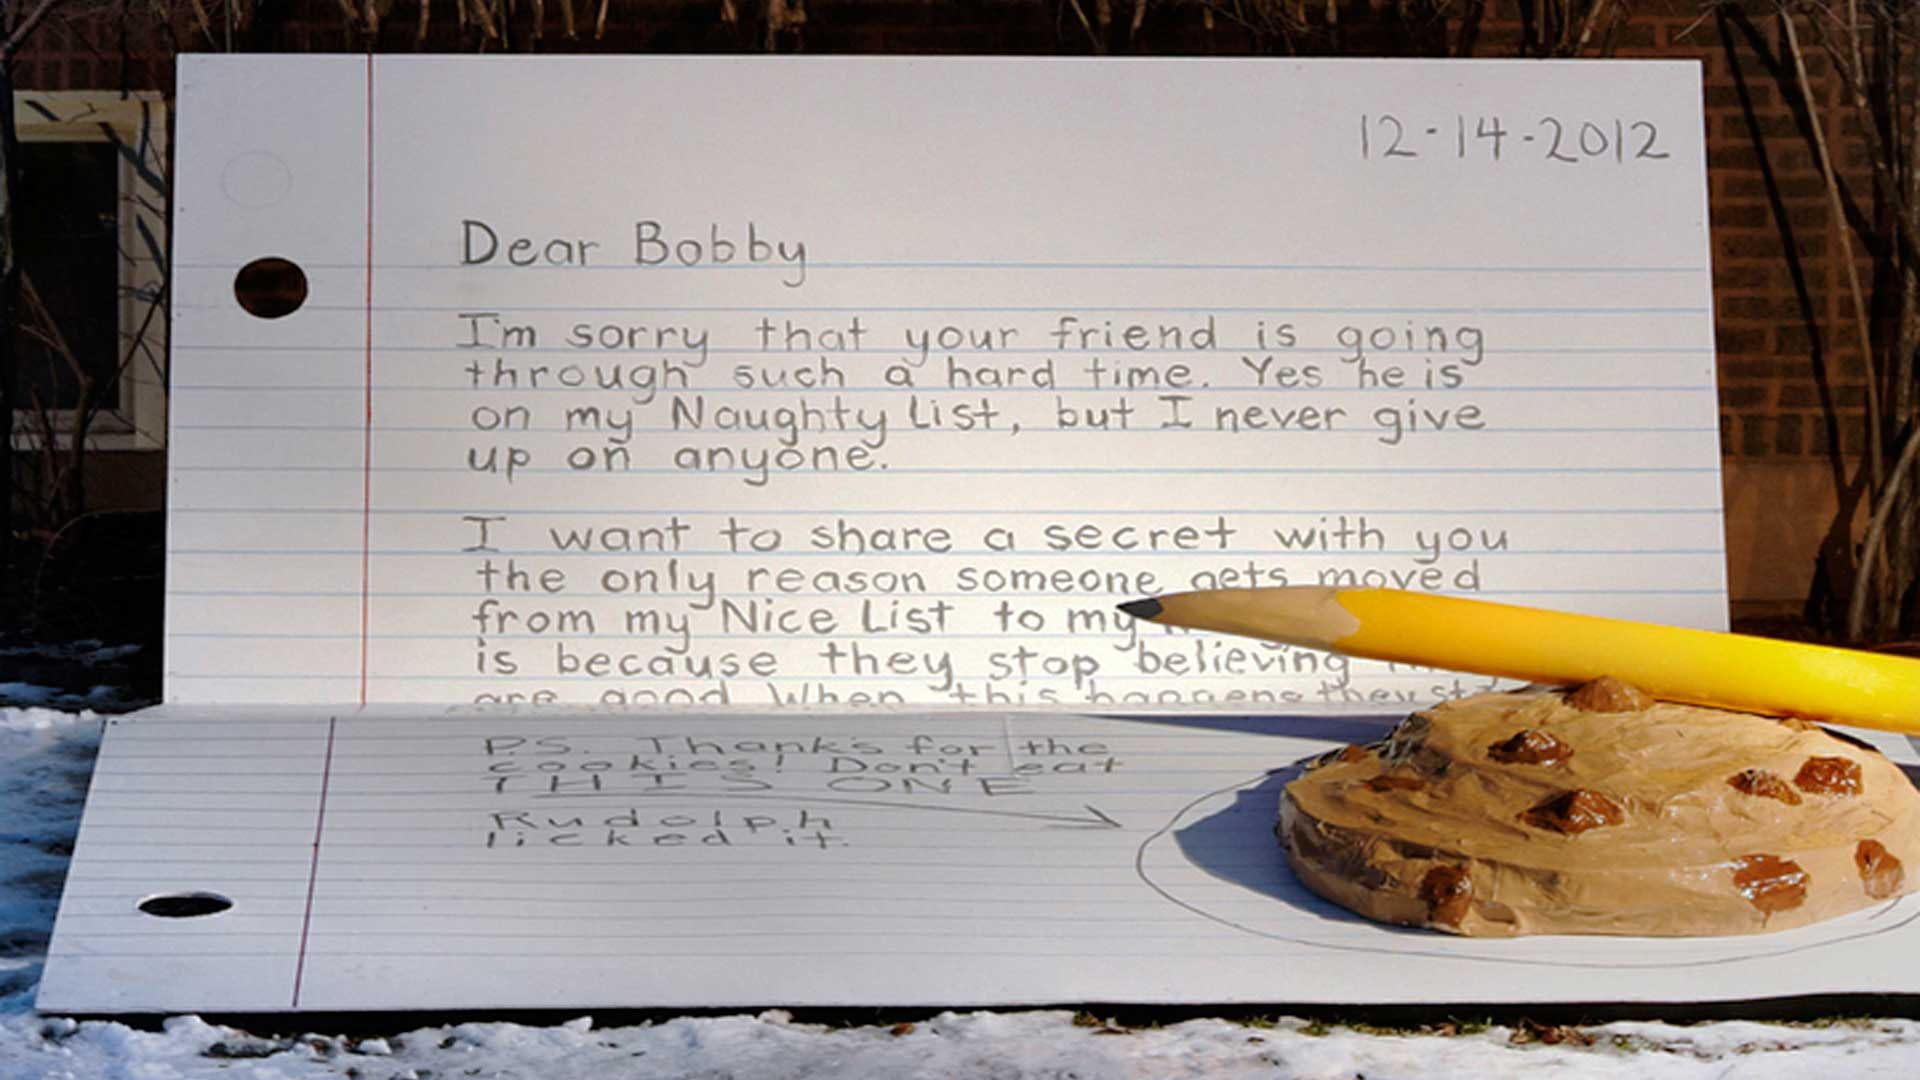 12-14-2012
Dear Bobby
I'm sorry that your friend is going
through such a hard time. Yes he is
on my Naughty List, but I never give
up on anyone.
I want to share a secret with you
the only reason someone gets moved
from my Nice List to my
is because they stop believing
are good When this happens they
P.S. Thanks for the
cookies! Don't eat
THIS ONE
Rudolph
licked it.